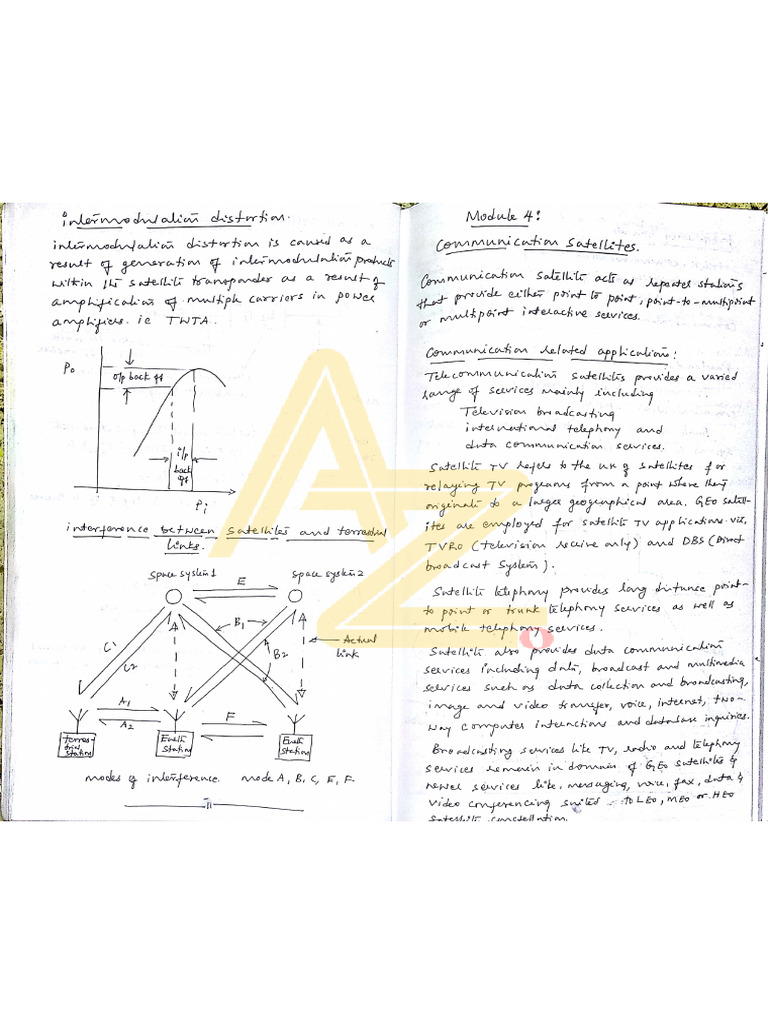 intermodulation distortion.
intermodulation distortion is caused as a
result of generation of intermodulation products
within the satellite transponder as a result of
amplification of multiple carriers in power
amplifiers. ie TWTA.
Po
o/p back off
i/p
back
off
Pi
interference between satellites and terrestrial
links.
space system1
E
space system2
B1
Actual
link
B2
C1
C2
A1
A2
F
terres-
trial
station
Earth
station
Earth
station
modes of interference. mode A, B, C, E, F.
11
Module 4:
Communication Satellites.
Communication satellite acts as repeater stations
that provide either point to point, point-to-multipoint
or multipoint interactive services.
Communication related applications:
Telecommunication satellites provides a varied
range of services mainly including
Television broadcasting
international telephony and
data communication services.
Satellite TV refers to the use of satellites for
relaying TV programs from a point where they
originate to a larger geographical area. GEO satell-
ites are employed for satellite TV applications viz,
TVRO (television receive only) and DBS (Direct
broadcast system).
Satellite telephony provides long distance point-
to point or trunk telephony services as well as
mobile telephony services.
Satellite also provides data communication
services including data, broadcast and multimedia
services such as data collection and broadcasting,
image and video transfer, voice, internet, two-
way computer interactions and database inquiries.
Broadcasting services like TV, radio and telephony
services remain in domain of GEO satellites &
newer services like, messaging, voice, fax, data &
video conferencing suited to LEO, MEO or HEO
satellite constellation.
AZ